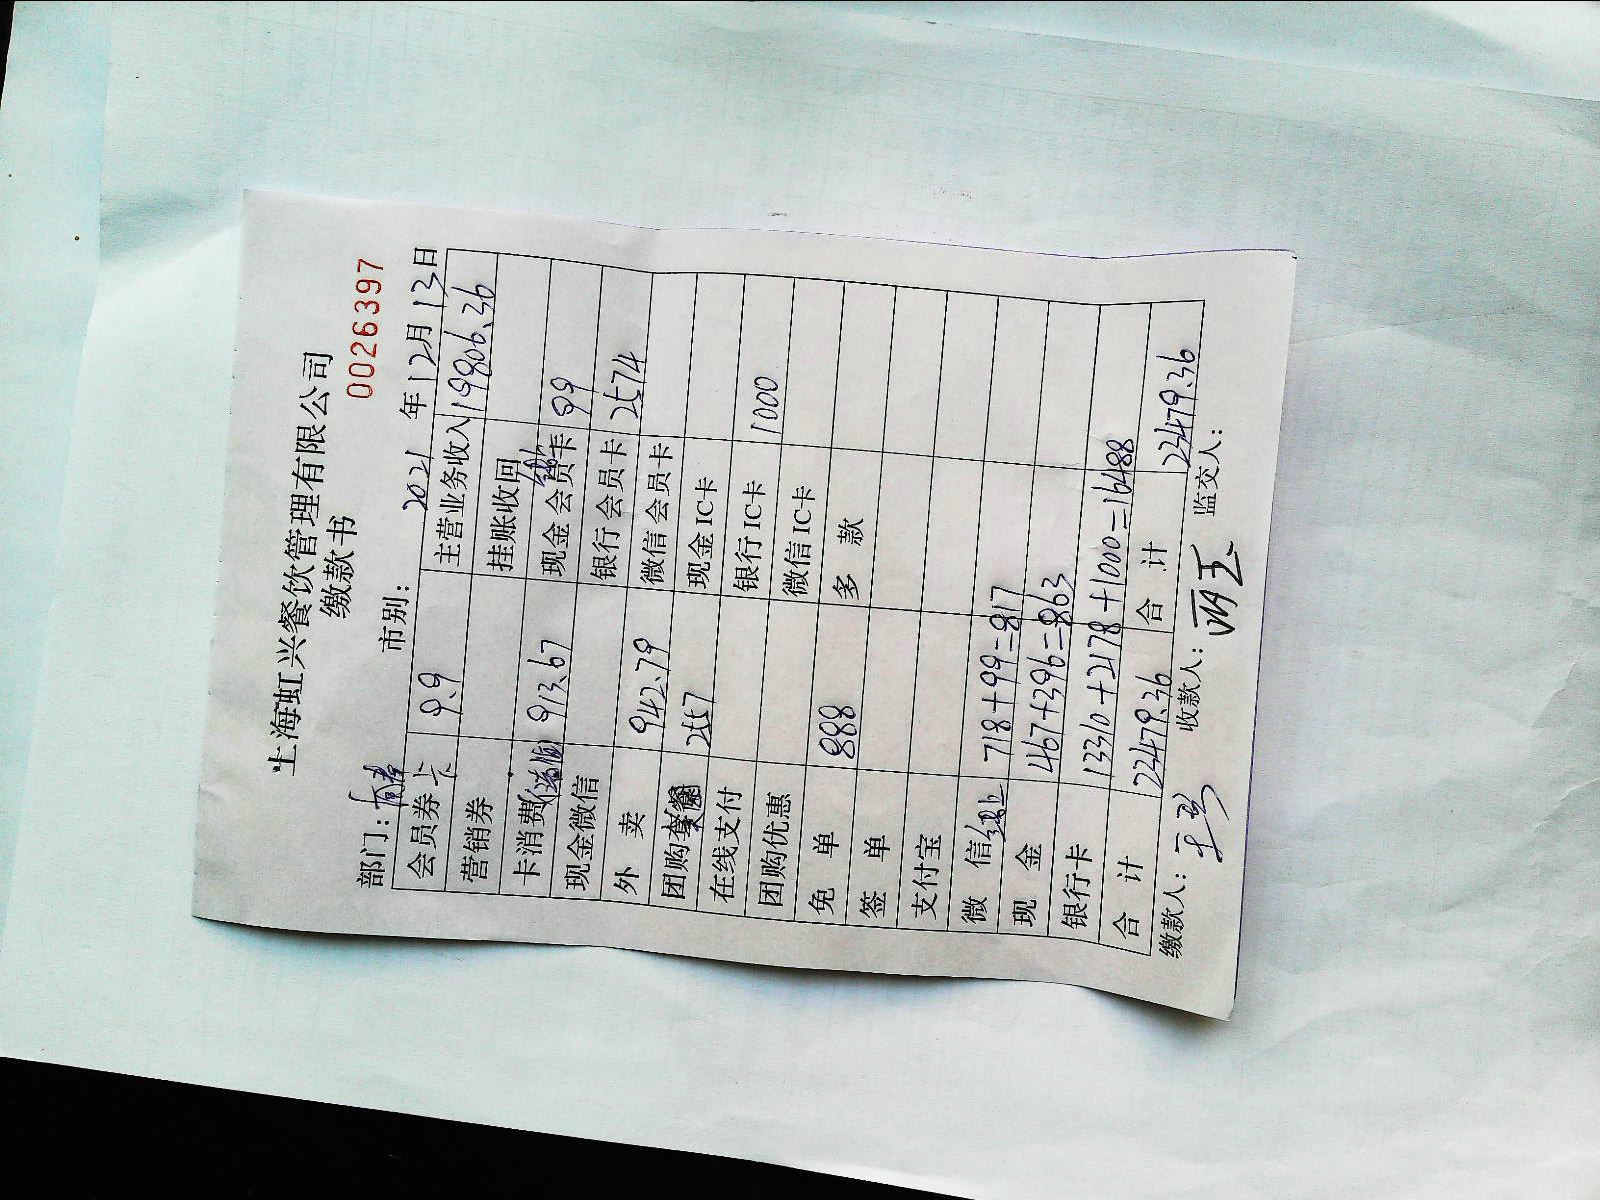 上海虹兴餐饮管理有限公司
缴款书
0026397
部门: 市别: 2021 年 12 月 13 日
会员券卡 9.9 主营业务收入 19806.36
营销券 挂账收回
卡消费 913.67 现金会员卡 99
现金微信 银行会员卡 2574
外卖 942.79 微信会员卡
团购套餐 2557 现金IC卡
在线支付 银行IC卡 1000
团购优惠 微信IC卡
免单 888 多款
签单
支付宝
微信 718+99=817
现金 467+396=863
银行卡 13310+2178+1000=16488
合计 23479.36 合计 23479.36
缴款人: 收款人: 监交人: